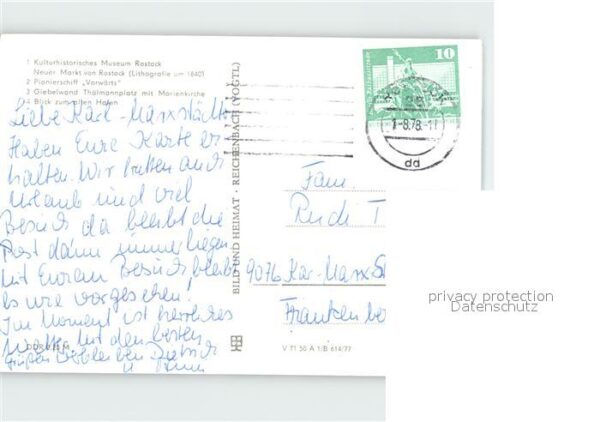 1 Kulturhistorisches Museum Rostock
Neuer Markt von Rostock (Lithografie um 1840)
2 Pionierschiff „Vorwärts“
3 Giebelwand Thälmannplatz mit Marienkirche
4 Blick zum alten Hafen
Liebe Karl-Marxstädter
Haben Eure Karte er-
halten. Wir hatten auch
Urlaub und viel
Besuch da bleibt die
Post dann immer liegen
mit Eurem Besuch bleibt
es wie vorgesehen!
Im Moment ist herrliches
mit den besten
Grüßen
DDR
BILD UND HEIMAT · REICHENBACH (VOGTL)
V 11 50 A 1/B 614/77
10
-8.78.-11
dd
Fam.
Rudi T
9076 Kar-Marx-St
Frankenber
privacy protection
Datenschutz